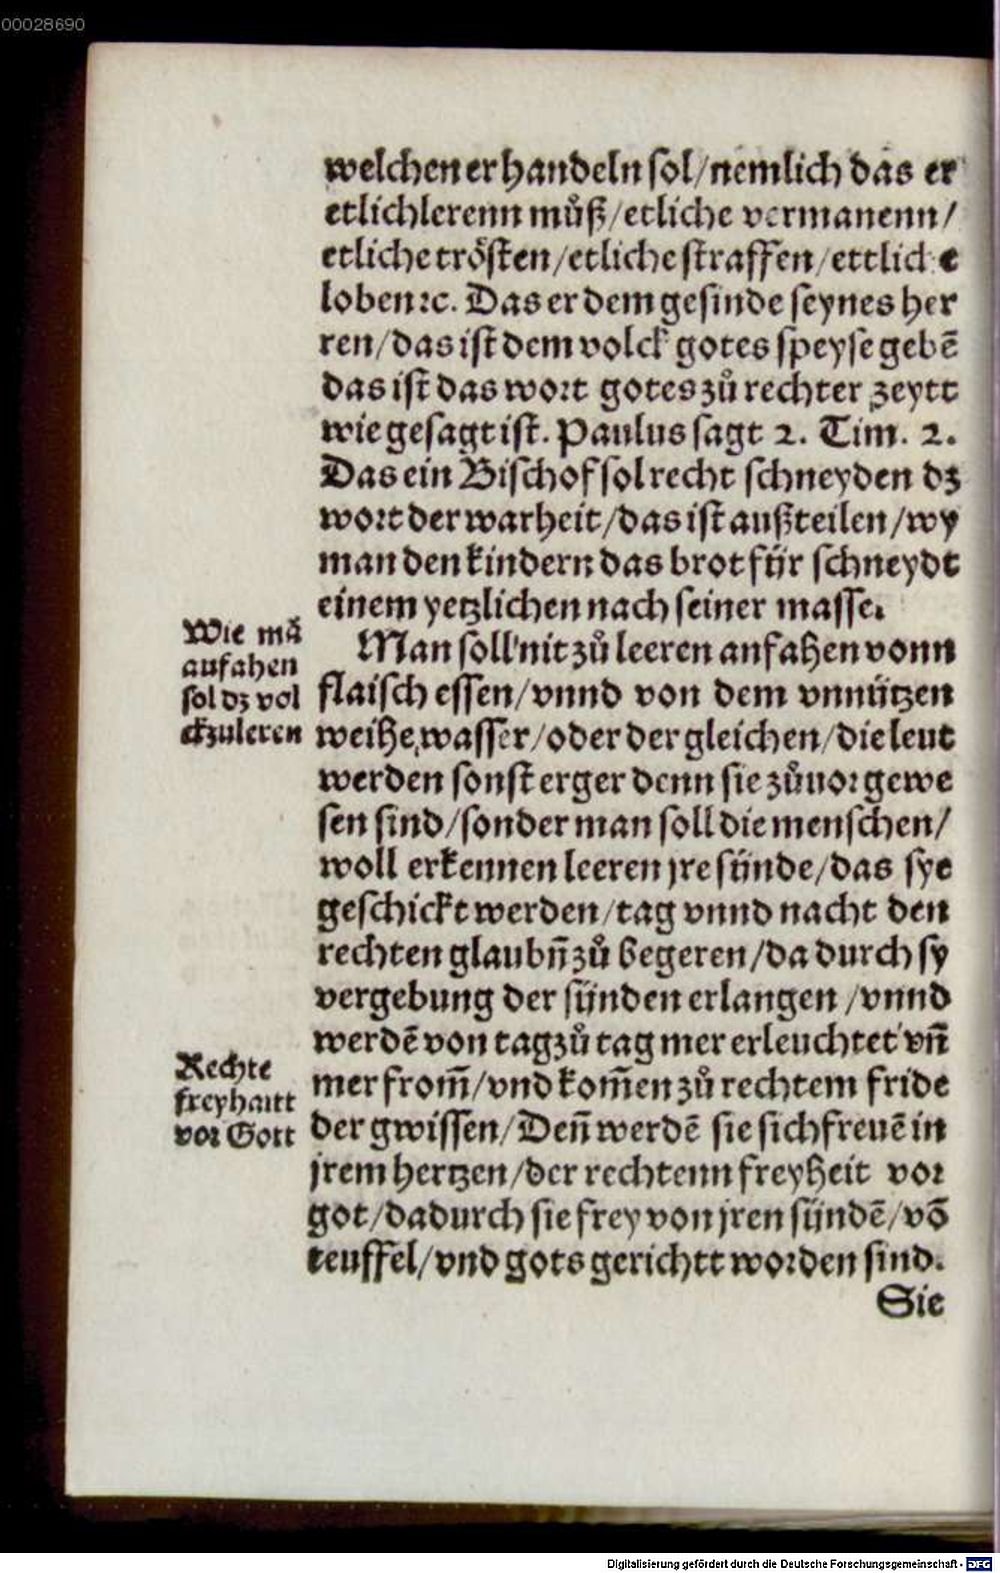 00028690
welchen er handeln sol/nemlich das er
etlich lerenn můß/etliche vermanenn/
etliche trösten/etliche straffen/ettliche
loben ꝛc. Das er dem gesinde seynes her
ren/das ist dem volck gotes speyse gebē
das ist das wort gotes zů rechter zeytt
wie gesagt ist. Paulus sagt 2. Tim. 2.
Das ein Bischof sol recht schneyden dz
wort der warheit/das ist außteilen/wy
man den kindern das brot für schneydt
einem yetzlichen nach seiner masse.
Wie mā
anfahen
sol dz vol
ck zu leren
Man soll nit zů leeren anfahen vonn
flaisch essen/vnnd von dem vnnützen
weihe wasser/oder der gleichen/die leut
werden sonst erger denn sie zůuor gewe
sen sind/sonder man soll die menschen/
woll erkennen leeren jre sünde/das sye
geschickt werden/tag vnnd nacht den
rechten glaubn̄ zů begeren/da durch sy
vergebung der sünden erlangen/vnnd
werdē von tag zů tag mer erleuchtet vn̄
mer from̄/vnd kom̄en zů rechtem fride
der gwissen/Den̄ werdē sie sich freuē in
jrem hertzen/der rechtenn freyheit vor
got/dadurch sie frey von jren sündē/vō
teuffel/vnd gots gerichtt worden sind.
Rechte
freyhaitt
vor Gott
Sie
Digitalisierung gefördert durch die Deutsche Forschungsgemeinschaft - DFG